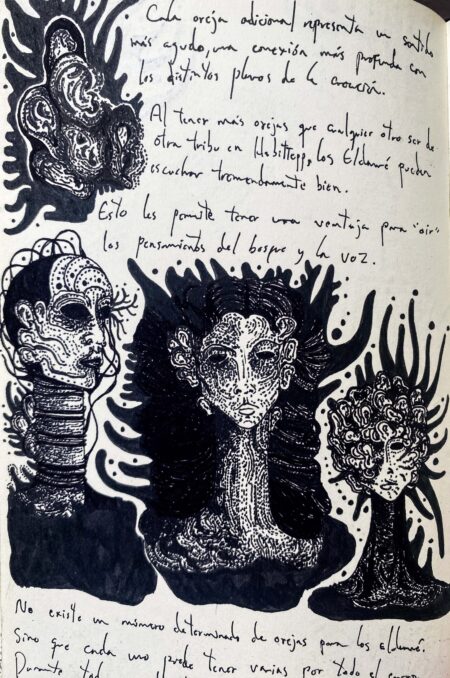 Cada oreja adicional representa un sentido
más agudo, una conexión más profunda con
los distintos planos de la creación.
Al tener más orejas que cualquier otro ser de
otra tribu en los Eldamré pueden
escuchar tremendamente bien.
Esto les permite tener una ventaja para "oir"
los pensamientos del bosque y la voz.
No existe un número determinado de orejas para los
Sino que cada uno puede tener varias por todo el cuerpo
Durante